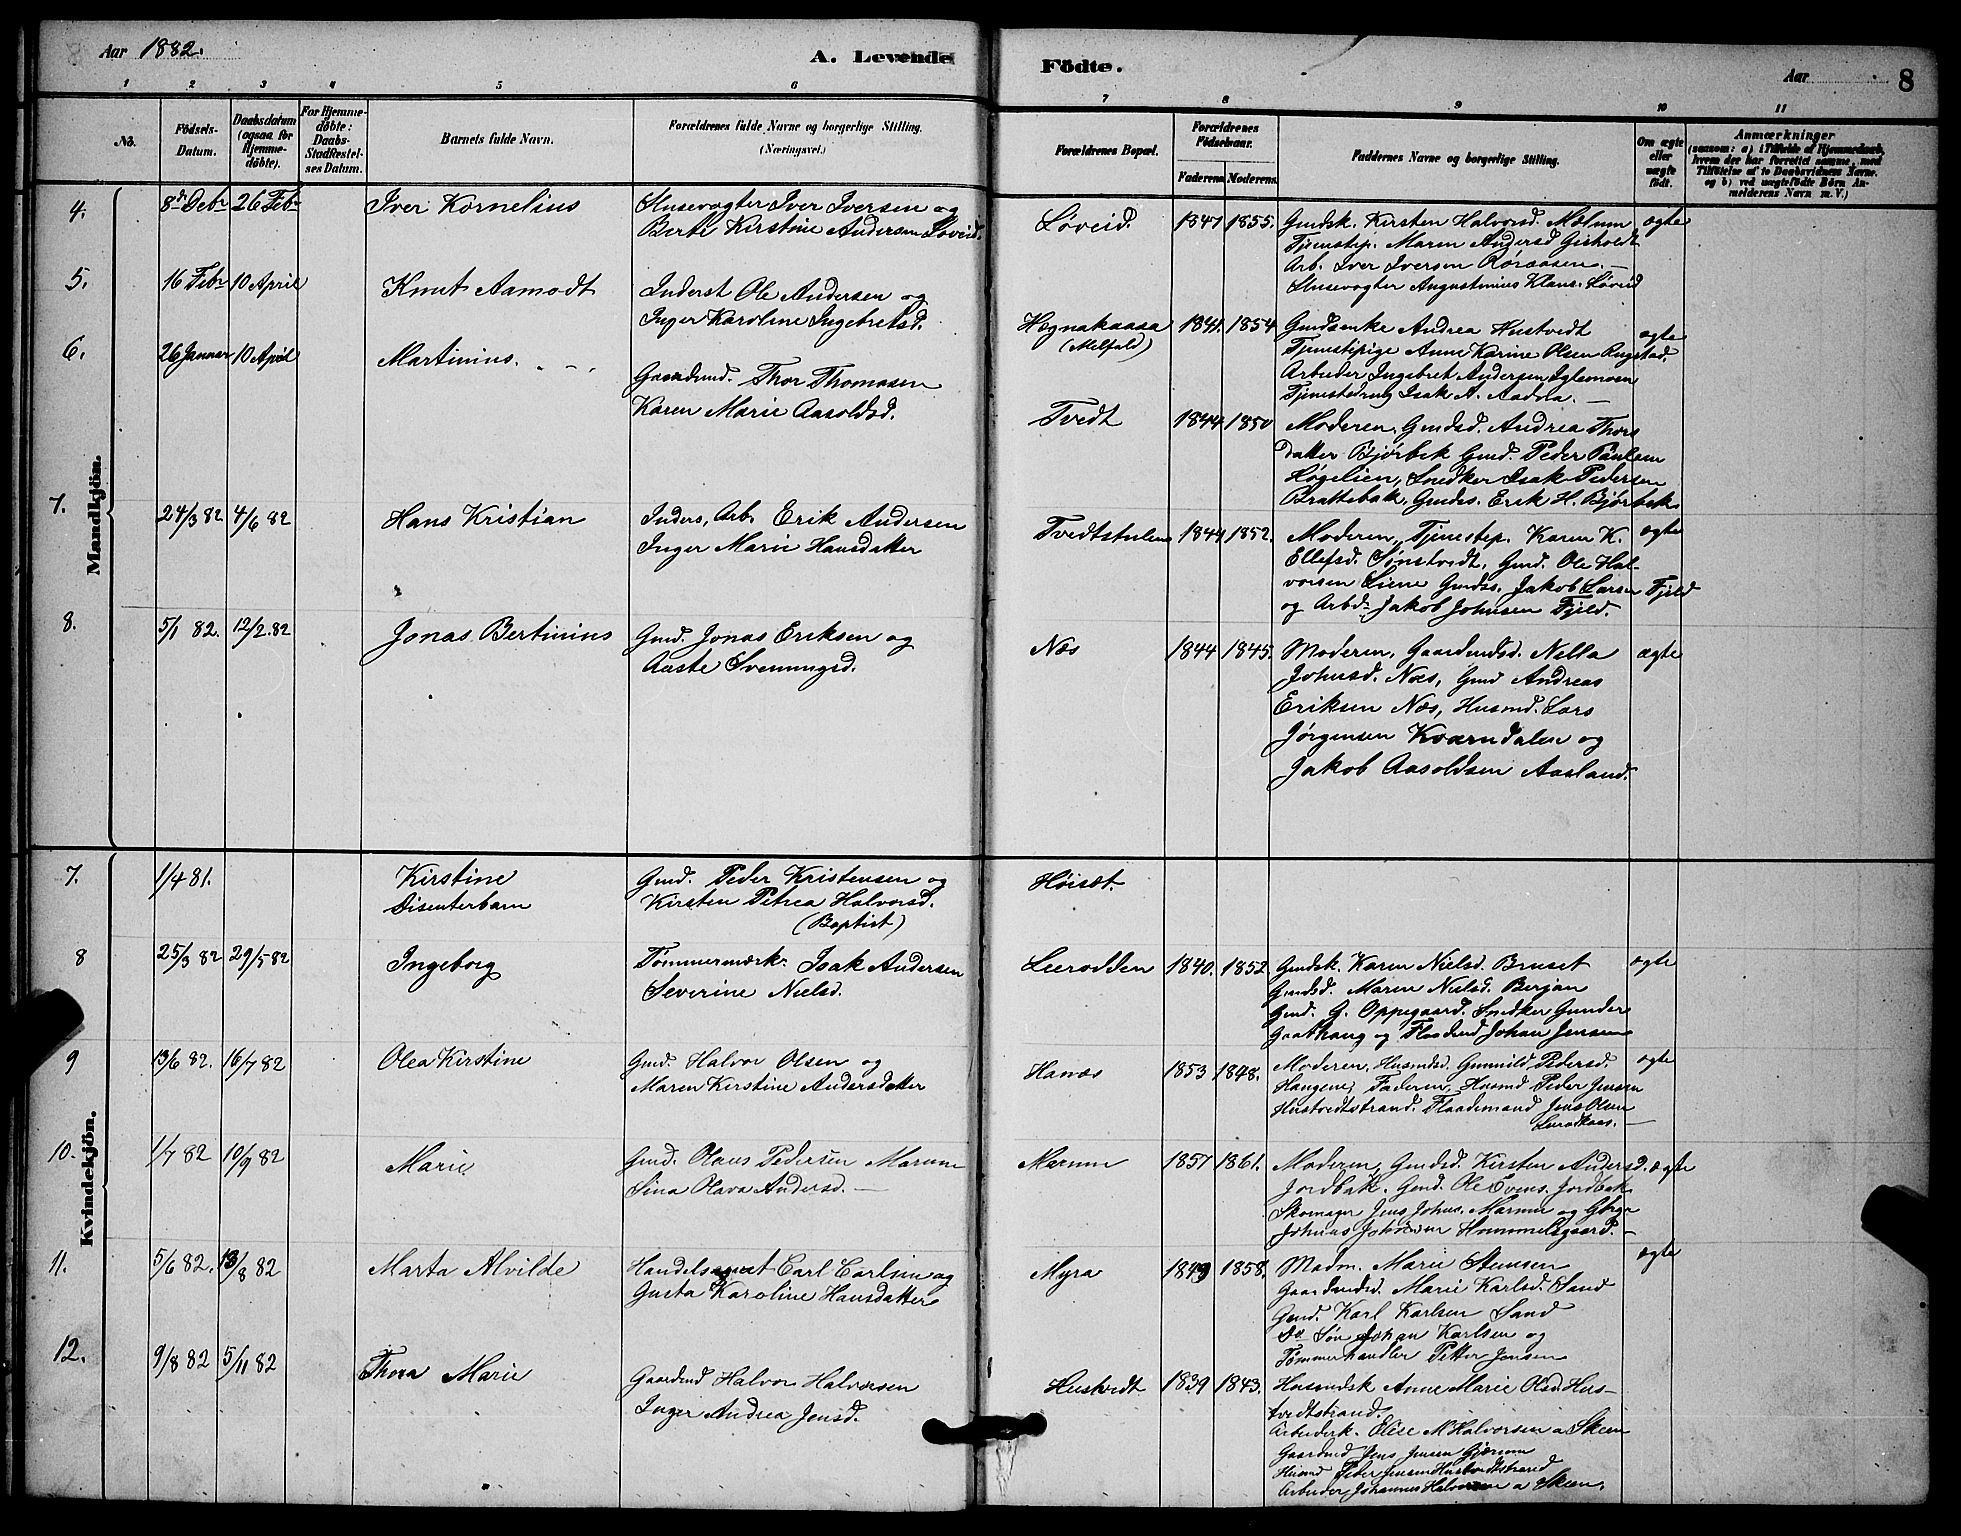 Aar 1882.
A. Levende Födte.
Aar
8
1 2 3 4 5 6 7 8 9 10 11
No.
Födsels-Datum.
Daabsdatum (ogsaa for Hjemmedöbte).
For Hjemmedöbte: Daabs-Stadfæstelses Datum.
Barnets fulde Navn.
Forældrenes fulde Navne og borgerlige Stilling. (Næringsvei.)
Forældrenes Bopæl.
Forældrenes Födselsaar.
Faderens. Moderens.
Faddernes Navne og borgerlige Stilling.
Om ægte eller uægte födt.
Anmærkninger (saasom: a) i Tilfælde af Hjemmedaab, hvem der har forrettet samme, med Tilföielse af to Daabsvidners Navne, og b) ved uægtefödte Börn Anmelderens Navn m. V.)
Mandkjön.
4. 8de Debr 26 Febr Iver Kornelius
Slusevogter Iver Iversen og
Berte Kirstine Andersen Løveid.
Løveid. 1847 1855.
Gmdsk. Kirsten Halvorsd. Mælum ægte
Tjenestep. Maren Andersd Gisholdt
Arb. Iver Iversen Røraasen.
Slusevogter Augustinius Klaus. Løveid
5. 16 Febr 10 April Knut Aamodt
Inderst Ole Andersen og
Inger Karoline Ingebretsd.
Hægnakaasa (Melfald) 1841. 1854
Gmdsenke Andrea Hustvedt ægte
Tjenestepige Anne Karine Olsen Rugstad.
Arbeider Ingebret Andersen Iglemoen
Tjenestedreng Isak A. Aadna.
6. 26 Januar 10 April Martinius.
Gaardmd. Thor Thomasen
Karen Marie Aasoldsd.
Tvedt 1844 1850
Moderen, Gmdsd. Andrea Thors
datter Bjørbek Gmd. Peder Paulsen
Høgelien, Snedker Isak Pedersen
Brattebak, Gmds. Erik H. Bjørbek
7. 24/3 82 4/6 82 Hans Kristian
Inders, Arb. Erik Andersen
Inger Marie Hansdatter
Tvedtstulen 1844 1852.
Moderen, Tjenestep. Karen K. ægte
Ellefsd. Sønstvedt, Gmd. Ole Hal-
vorsen Liene Gmds. Jakob Larsen Fjeld
og Arbd. Jakob Johnsen Fjeld.
8. 5/1 82. 12/2.82 Jonas Bertinius
Gmd. Jonas Eriksen og
Aaste Svenningsd.
Næs 1844 1845.
Moderen, Gaardmdsd. Nella ægte
Johnsd. Næs, Gmd Andreas
Eriksen Næs, Husmd. Lars
Jørgensen Kværndalen og
Jakob Aasoldsen Aasland.
Kvindekjön.
7. 1/4 81. Kirstine
Disenterbarn
Gmd. Peder Kristensen og
Kirsten Petrea Halvorsd.
(Baptist)
Høisæt.
8 25/3 82 29/5 82 Ingeborg
Tømmermærk. Isak Andersen
Severine Nielsd.
Leerodden 1840. 1852
Gmdsk. Karen Nielsd. Bruset ægte
Gmdsd. Maren Nielsd. Berjan
Gmd. G. Oppegaard. Snedker Gunder
Gaathaug og Flaadmd Johan Jensen
9 13/6 82. 16/7 82 Olea Kirstine
Gmd. Halvor Olsen og
Maren Kirstine Andersdatter
Hanæs 1853 1848.
Moderen, Husmdsd. Gunnild Pedersd. ægte
Haugene, Faderen, Husmd Peder Jensen
Hustvedtstrand. Flaademand Jens Olsen
10. 1/7 82 10/9 82 Marie
Gmd. Olaus Pedersen Marum
Sina Olava Andersd.
Marum 1857 1861.
Moderen, Gmdsd. Kirsten Andersd. ægte
Jordbak. Gmd. Ole Evens. Jordbak
Skomager Jens Johns. Marum og
Johnsen Hummelsgaard.
11. 5/6 82. 13/8 82 Marta Alvilde
Handelsagent Carl Carlsen og
Gusta Karoline Hansdatter
Myra 1849 1858.
Madm. Marie Stensen ægte
Gaardmdsd. Marie Karlsd. Sand
Gmd. Karl Karlsen Sand
Ds Søn Johan Karlsen og
Tømmerhandler Petter Jensen
12. 9/8 82 5/11 82 Thora Marie
Gaardmd Halvor Halvorsen
Inger Andrea Jensd.
Hustvedt 1839 1843.
Husmdsk Anne Marie Olsd. Hus-
tvedtstrand.
Arbeiderk. Elise M Halvorsen a Skien
Gaardmd Jens Jensen Gjærum
Husmd Peder Jensen Hustvedtstrand
Arbeider Johannes Halvorsen a Skien.